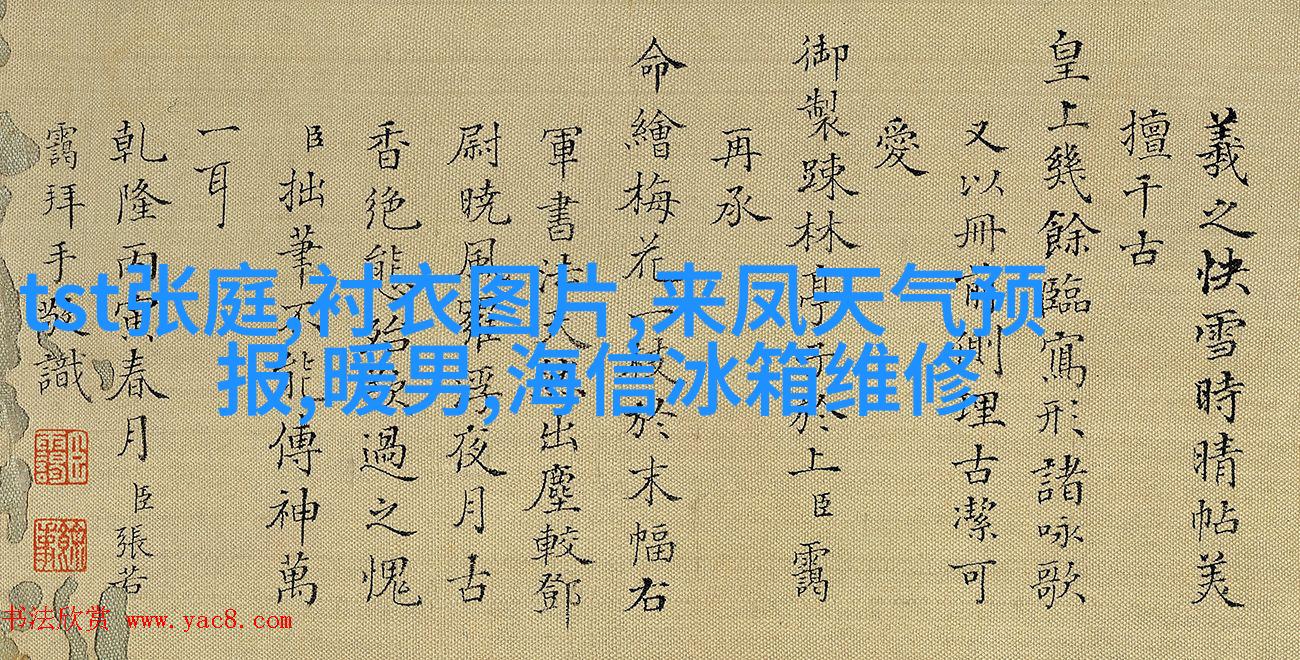 羲之快雪時晴帖美
擅千古
皇上幾餘臨寫形諸咏歌
又以冊前側理古潔可
愛
御製踈林亭子於上臣靄
再承
命繪梅花一枝於末幅右
軍書法大出塵較鄧
尉曉風夜月古
香絶態殆欲過之愧
臣拙筆不能傳神萬
一耳
乾隆丙寅春月臣張若
靄拜手敬識
tst张庭,衬衣图片,来凤天气预
报,暖男,海信冰箱维修
书法欣赏 www.yac8.com